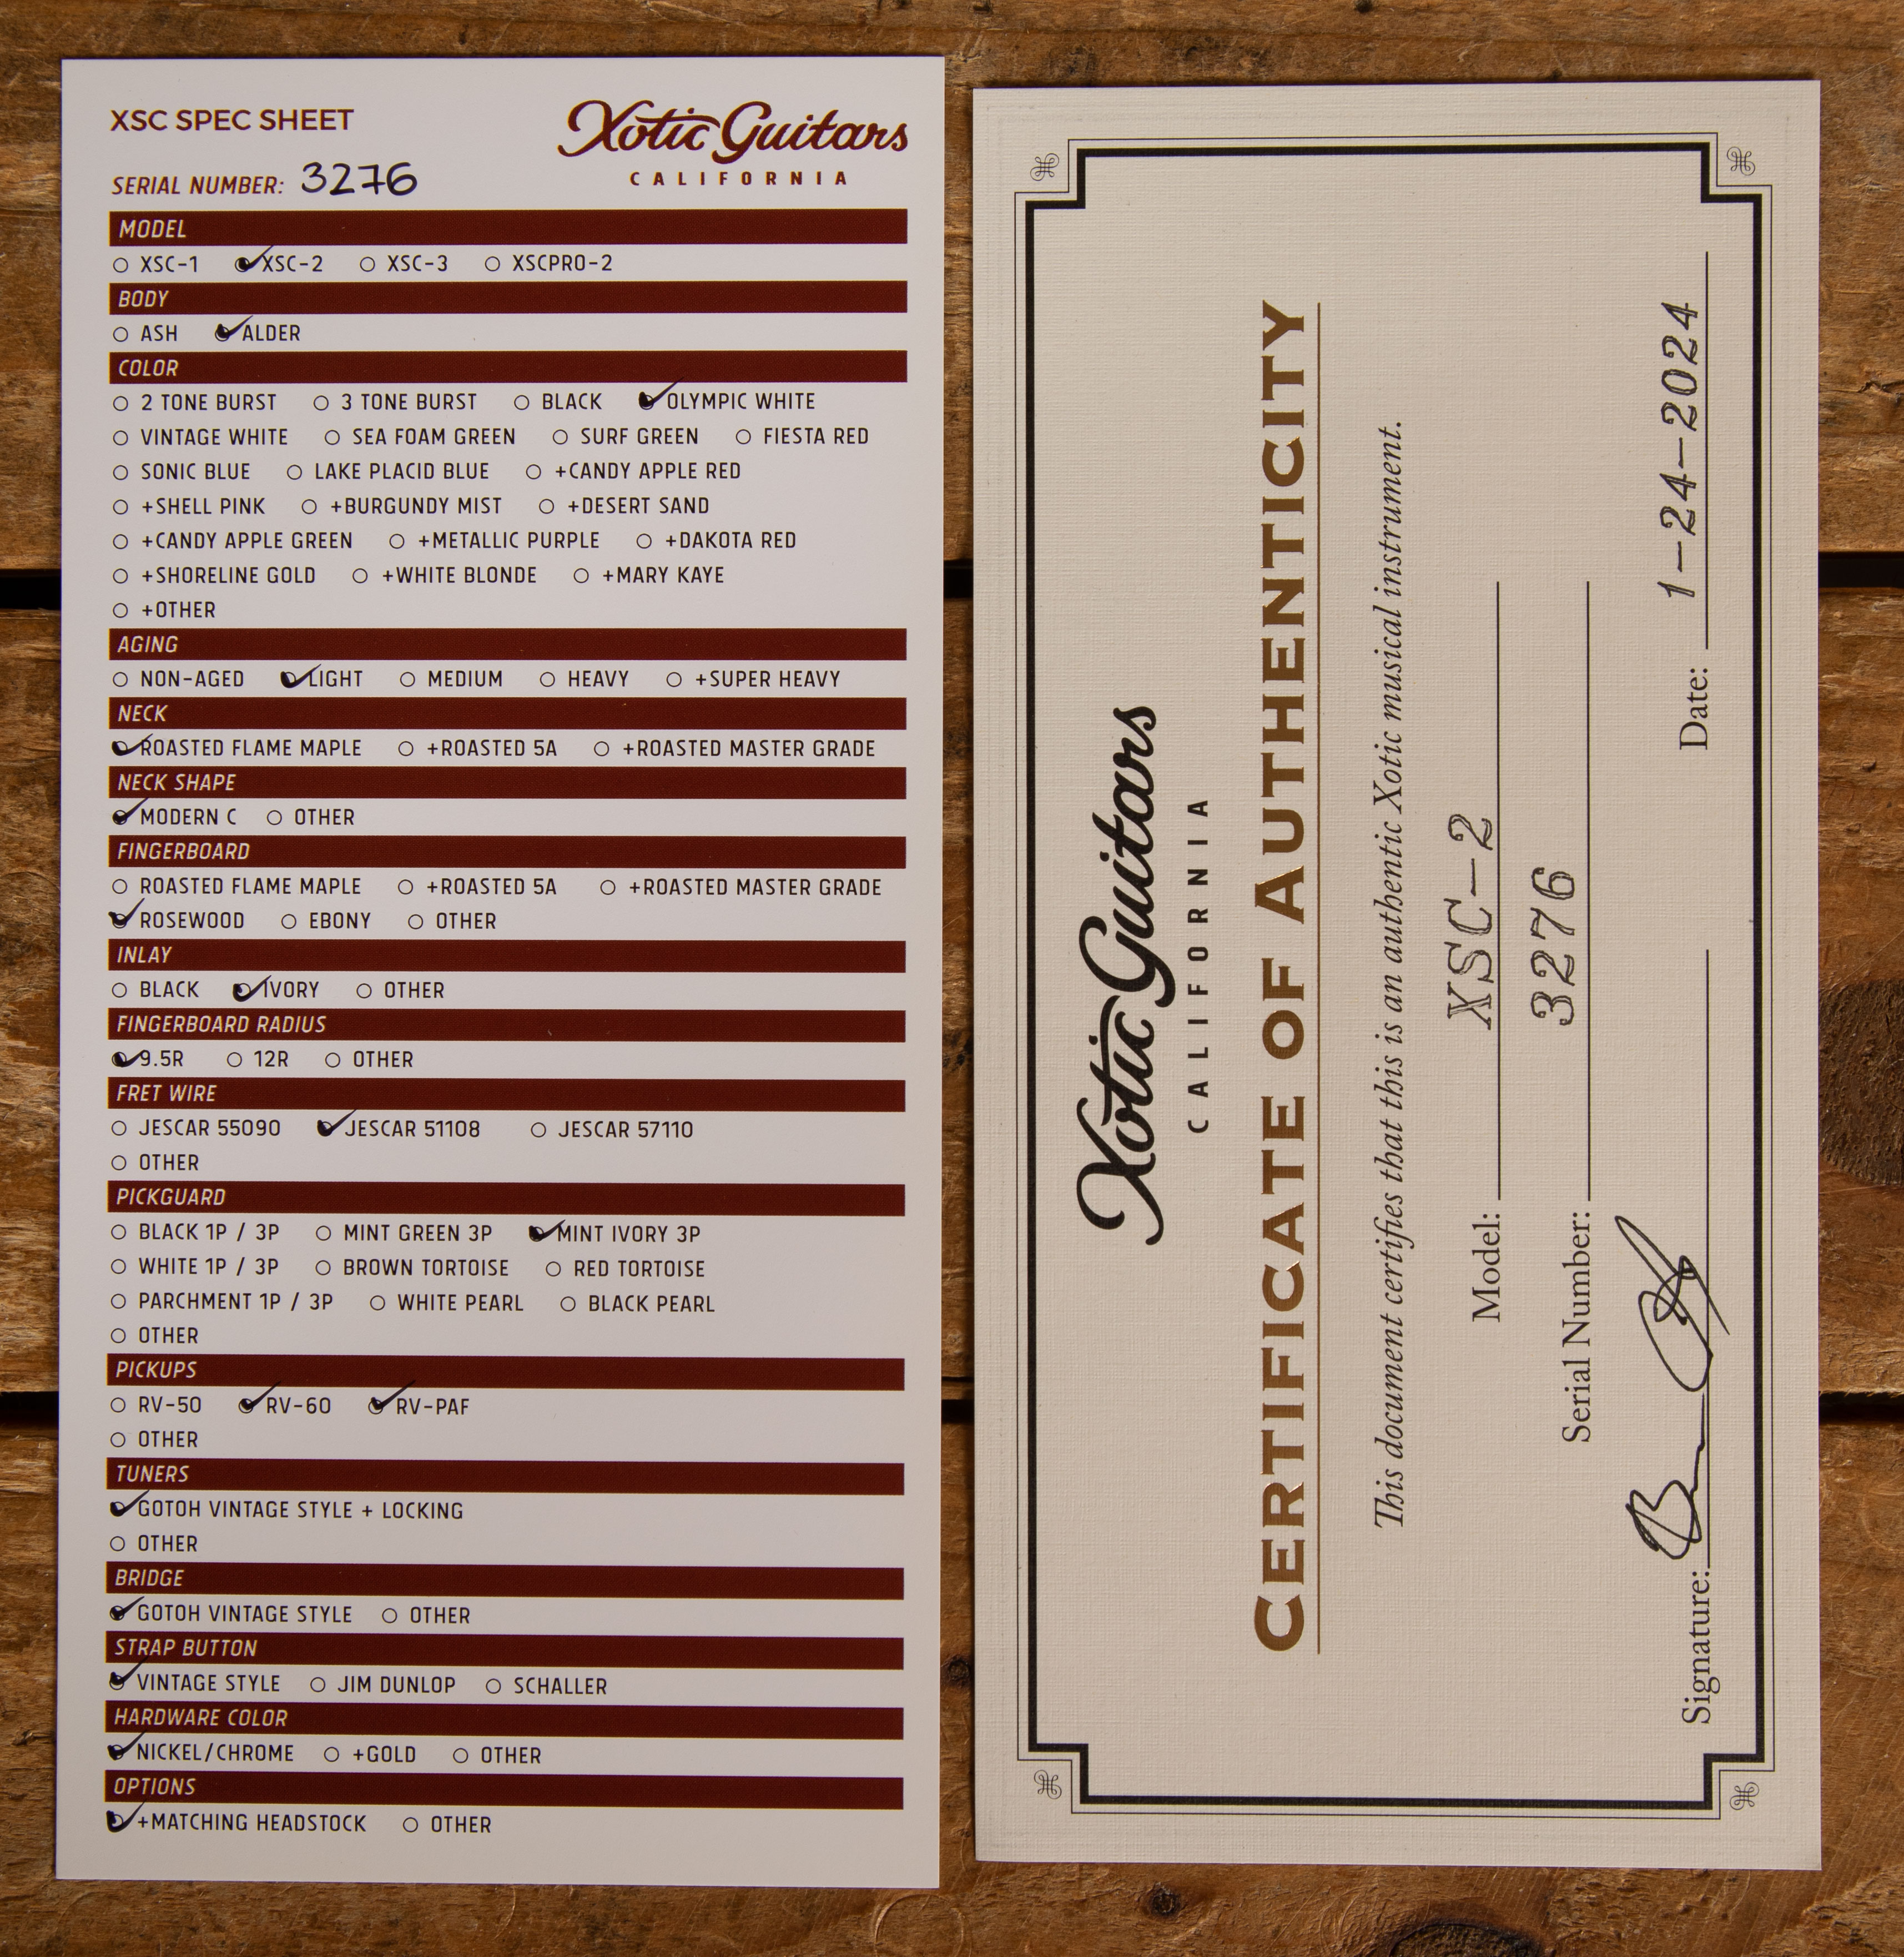 XSC SPEC SHEET
Xotic Guitars
CALIFORNIA
SERIAL NUMBER: 3276
MODEL
XSC-1 XSC-2 XSC-3 XSCPRO-2
BODY
ASH ALDER
COLOR
2 TONE BURST 3 TONE BURST BLACK OLYMPIC WHITE
VINTAGE WHITE SEA FOAM GREEN SURF GREEN FIESTA RED
SONIC BLUE LAKE PLACID BLUE +CANDY APPLE RED
+SHELL PINK +BURGUNDY MIST +DESERT SAND
+CANDY APPLE GREEN +METALLIC PURPLE +DAKOTA RED
+SHORELINE GOLD +WHITE BLONDE +MARY KAYE
+OTHER
AGING
NON-AGED LIGHT MEDIUM HEAVY +SUPER HEAVY
NECK
ROASTED FLAME MAPLE +ROASTED 5A +ROASTED MASTER GRADE
NECK SHAPE
MODERN C OTHER
FINGERBOARD
ROASTED FLAME MAPLE +ROASTED 5A +ROASTED MASTER GRADE
ROSEWOOD EBONY OTHER
INLAY
BLACK IVORY OTHER
FINGERBOARD RADIUS
9.5R 12R OTHER
FRET WIRE
JESCAR 55090 JESCAR 51108 JESCAR 57110
OTHER
PICKGUARD
BLACK 1P / 3P MINT GREEN 3P MINT IVORY 3P
WHITE 1P / 3P BROWN TORTOISE RED TORTOISE
PARCHMENT 1P / 3P WHITE PEARL BLACK PEARL
OTHER
PICKUPS
RV-50 RV-60 RV-PAF
OTHER
TUNERS
GOTOH VINTAGE STYLE + LOCKING
OTHER
BRIDGE
GOTOH VINTAGE STYLE OTHER
STRAP BUTTON
VINTAGE STYLE JIM DUNLOP SCHALLER
HARDWARE COLOR
NICKEL/CHROME +GOLD OTHER
OPTIONS
+MATCHING HEADSTOCK OTHER
Xotic Guitars
CALIFORNIA
CERTIFICATE OF AUTHENTICITY
This document certifies that this is an authentic Xotic musical instrument.
Model: XSC-2
Serial Number: 3276
Signature: Date: 1-24-2024